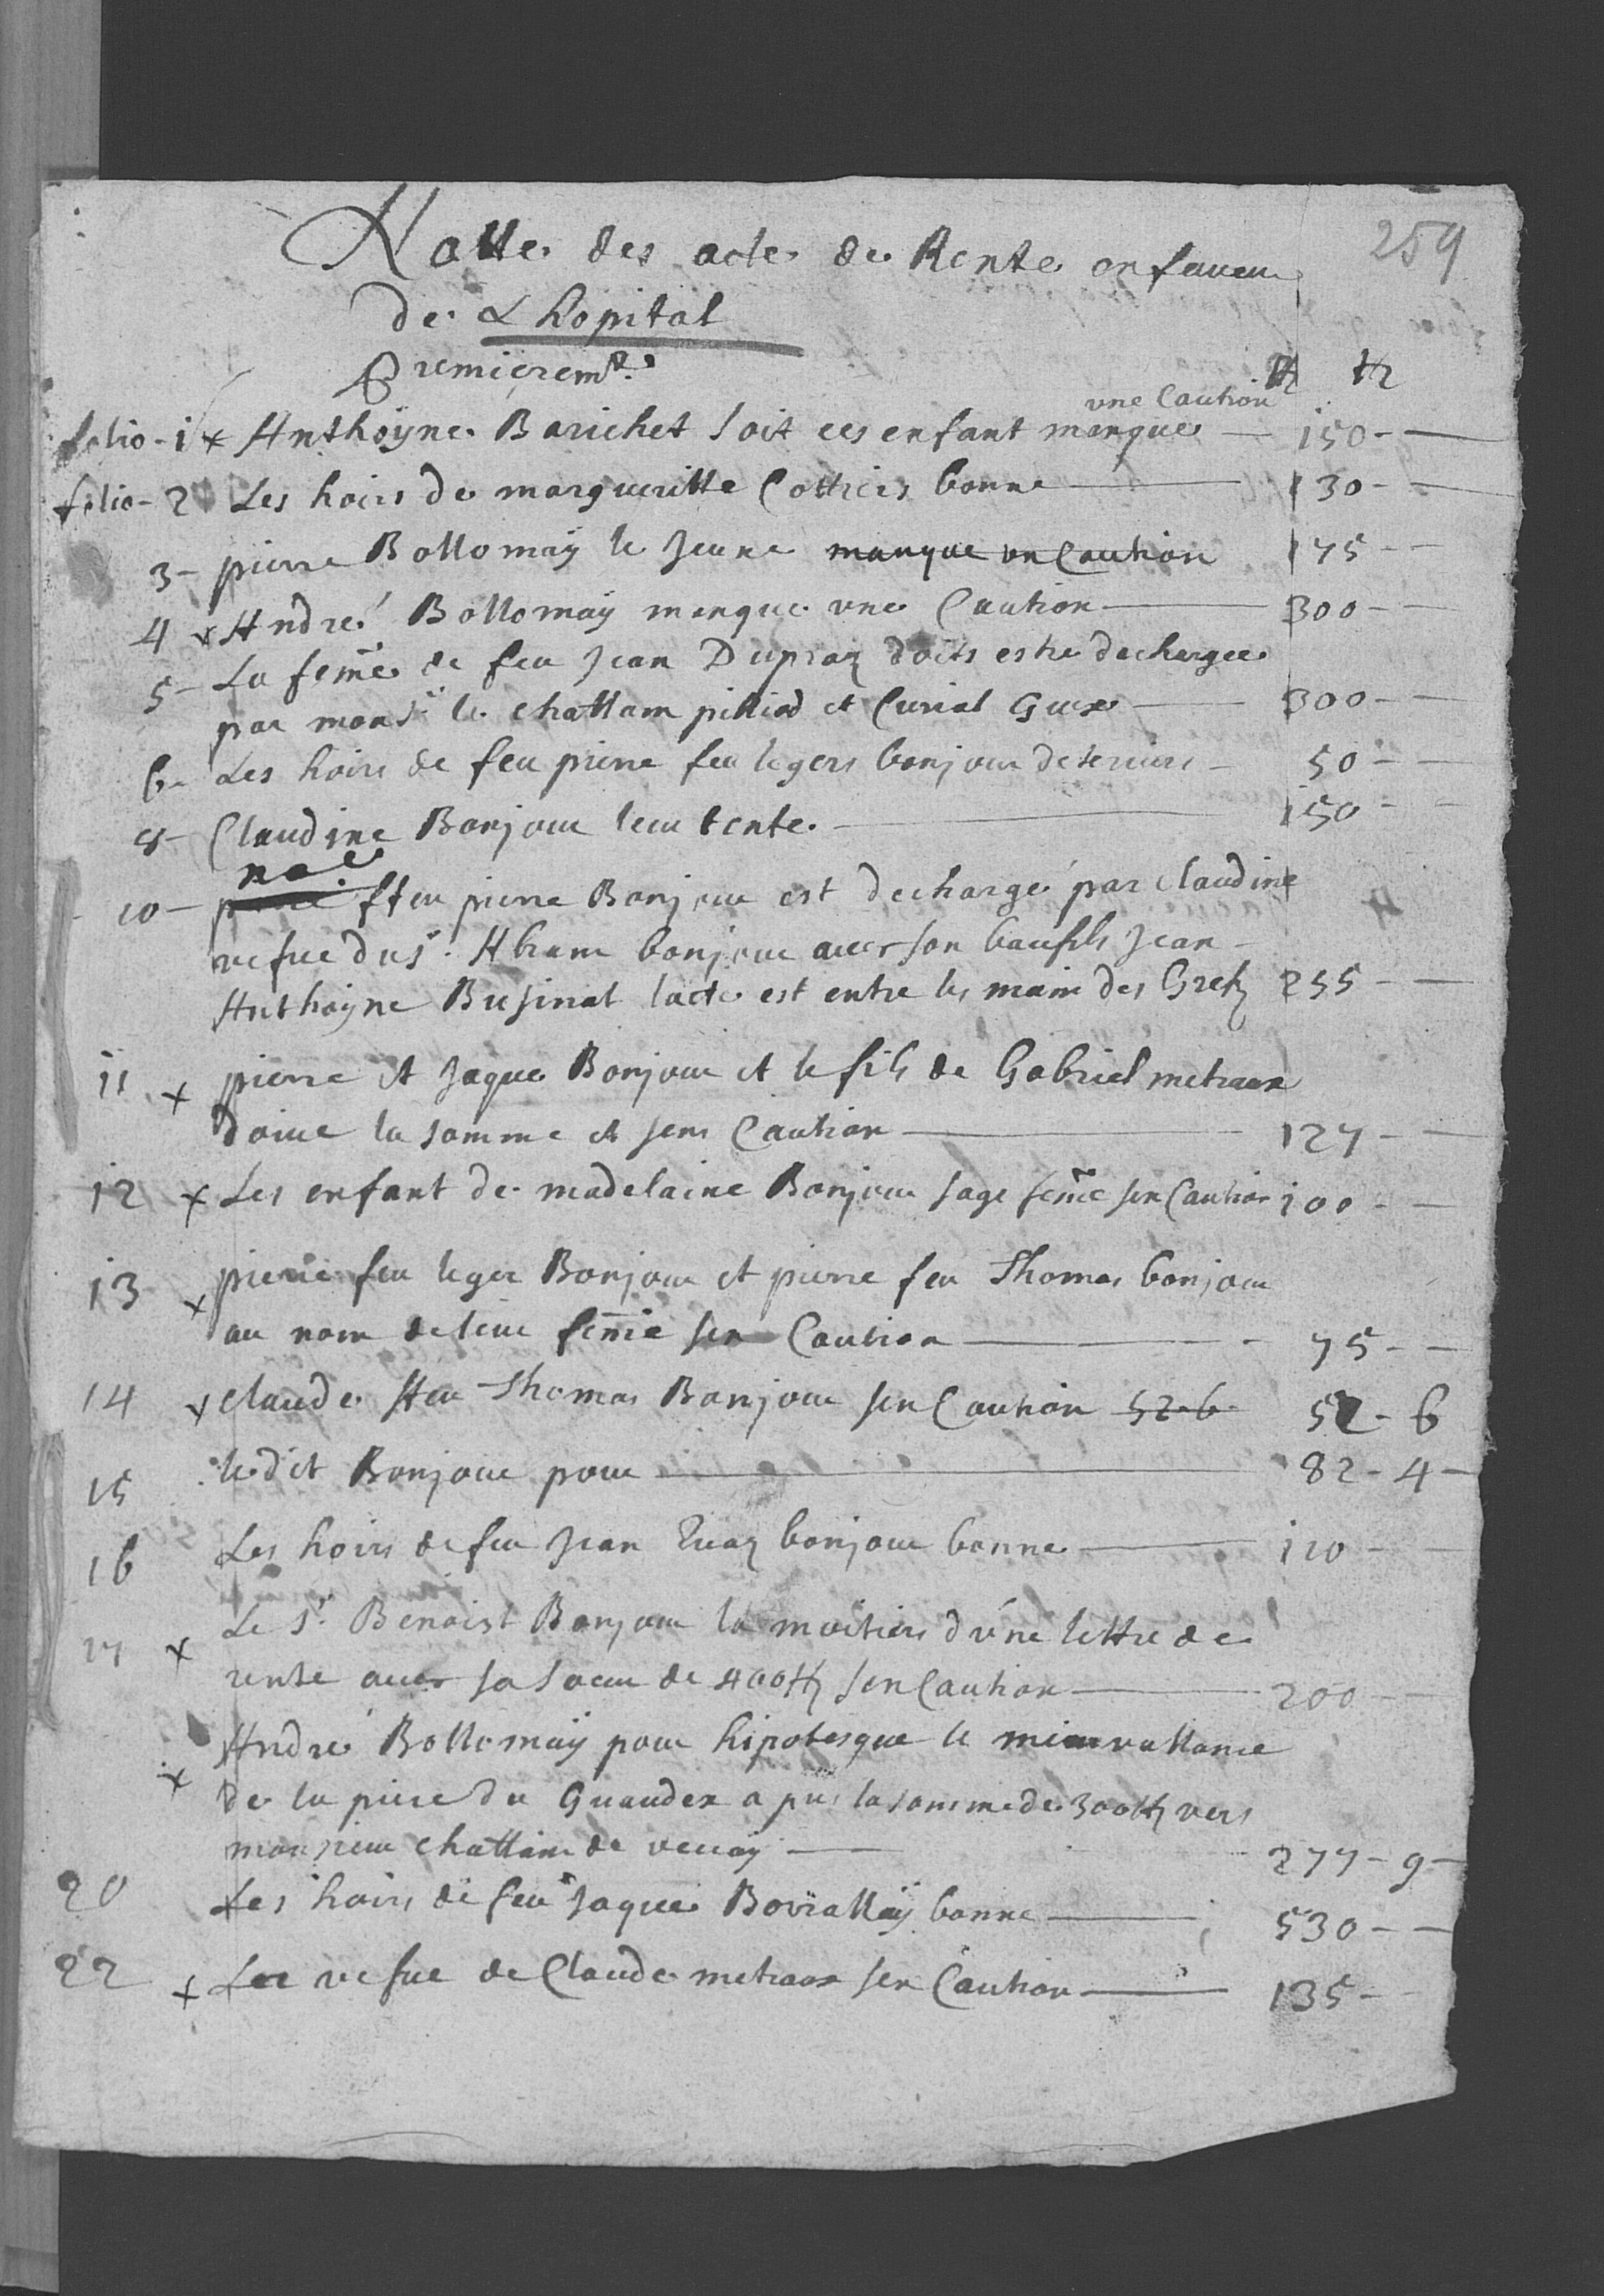 259
Notte des acte de Rente en faueur
de Lhopital
Premierem.t
une Caution
folio - 1 x Anthoÿne Barichet soit ces enfant manque — 150 -
folio - 2 Les hoirs de margueritte Cottiers bonne — 130 -
3 - pierre Bollomaÿ le Jeune manque un Caution 175 -
4 x André Bollomaÿ manque une Caution — 300 -
5 - La feme de feu Jean Dupraz doits estre dechargee
par mons.r le chattam pilliod et Curial Guex — 300 -
6 - Les hoirs de feu pierre feu legers bonjour — 50 -
8 - Claudine Bonjour leur tente — 150 -
10 - noe ffeu pierre Bonjour est dechargé par Claudine
vefue du s.r Abram bonjour auec son baufils Jean
Anthoÿne Businat lacte est entre les main des Grefz 255 -
11 x pierre et Jaque Bonjour et le fils de Gabriel metraux
doiue la somme et sens Caution — 127 -
12 x Les enfant de madelaine Bonjour sage feme sen Caution 100 -
13 x pierre feu leger Bonjour et pierre feu Thomas bonjour
au nom de leur feme sen Caution — 75 -
14 x claude ffeu Thomas Bonjour sen Caution 52-6 52 - 6
15 ledit Bonjour pour — 82 - 4 -
16 Les hoirs de feu Jean bonjour bonne — 120 -
17 x Le S.r Benoist Bonjour la moitiers d'une lettre de
rente auec sa soeur de 400 sen Caution — 200 -
x André Bollomaÿ pour hipotesque le
de la piece du a pris la somme de 300 vers
monsieur chattam de — 277 - 9 -
20 Les hoirs de feu Jaque bonne — 530 -
22 x La vefue de Claude metraux sen Caution — 135 -